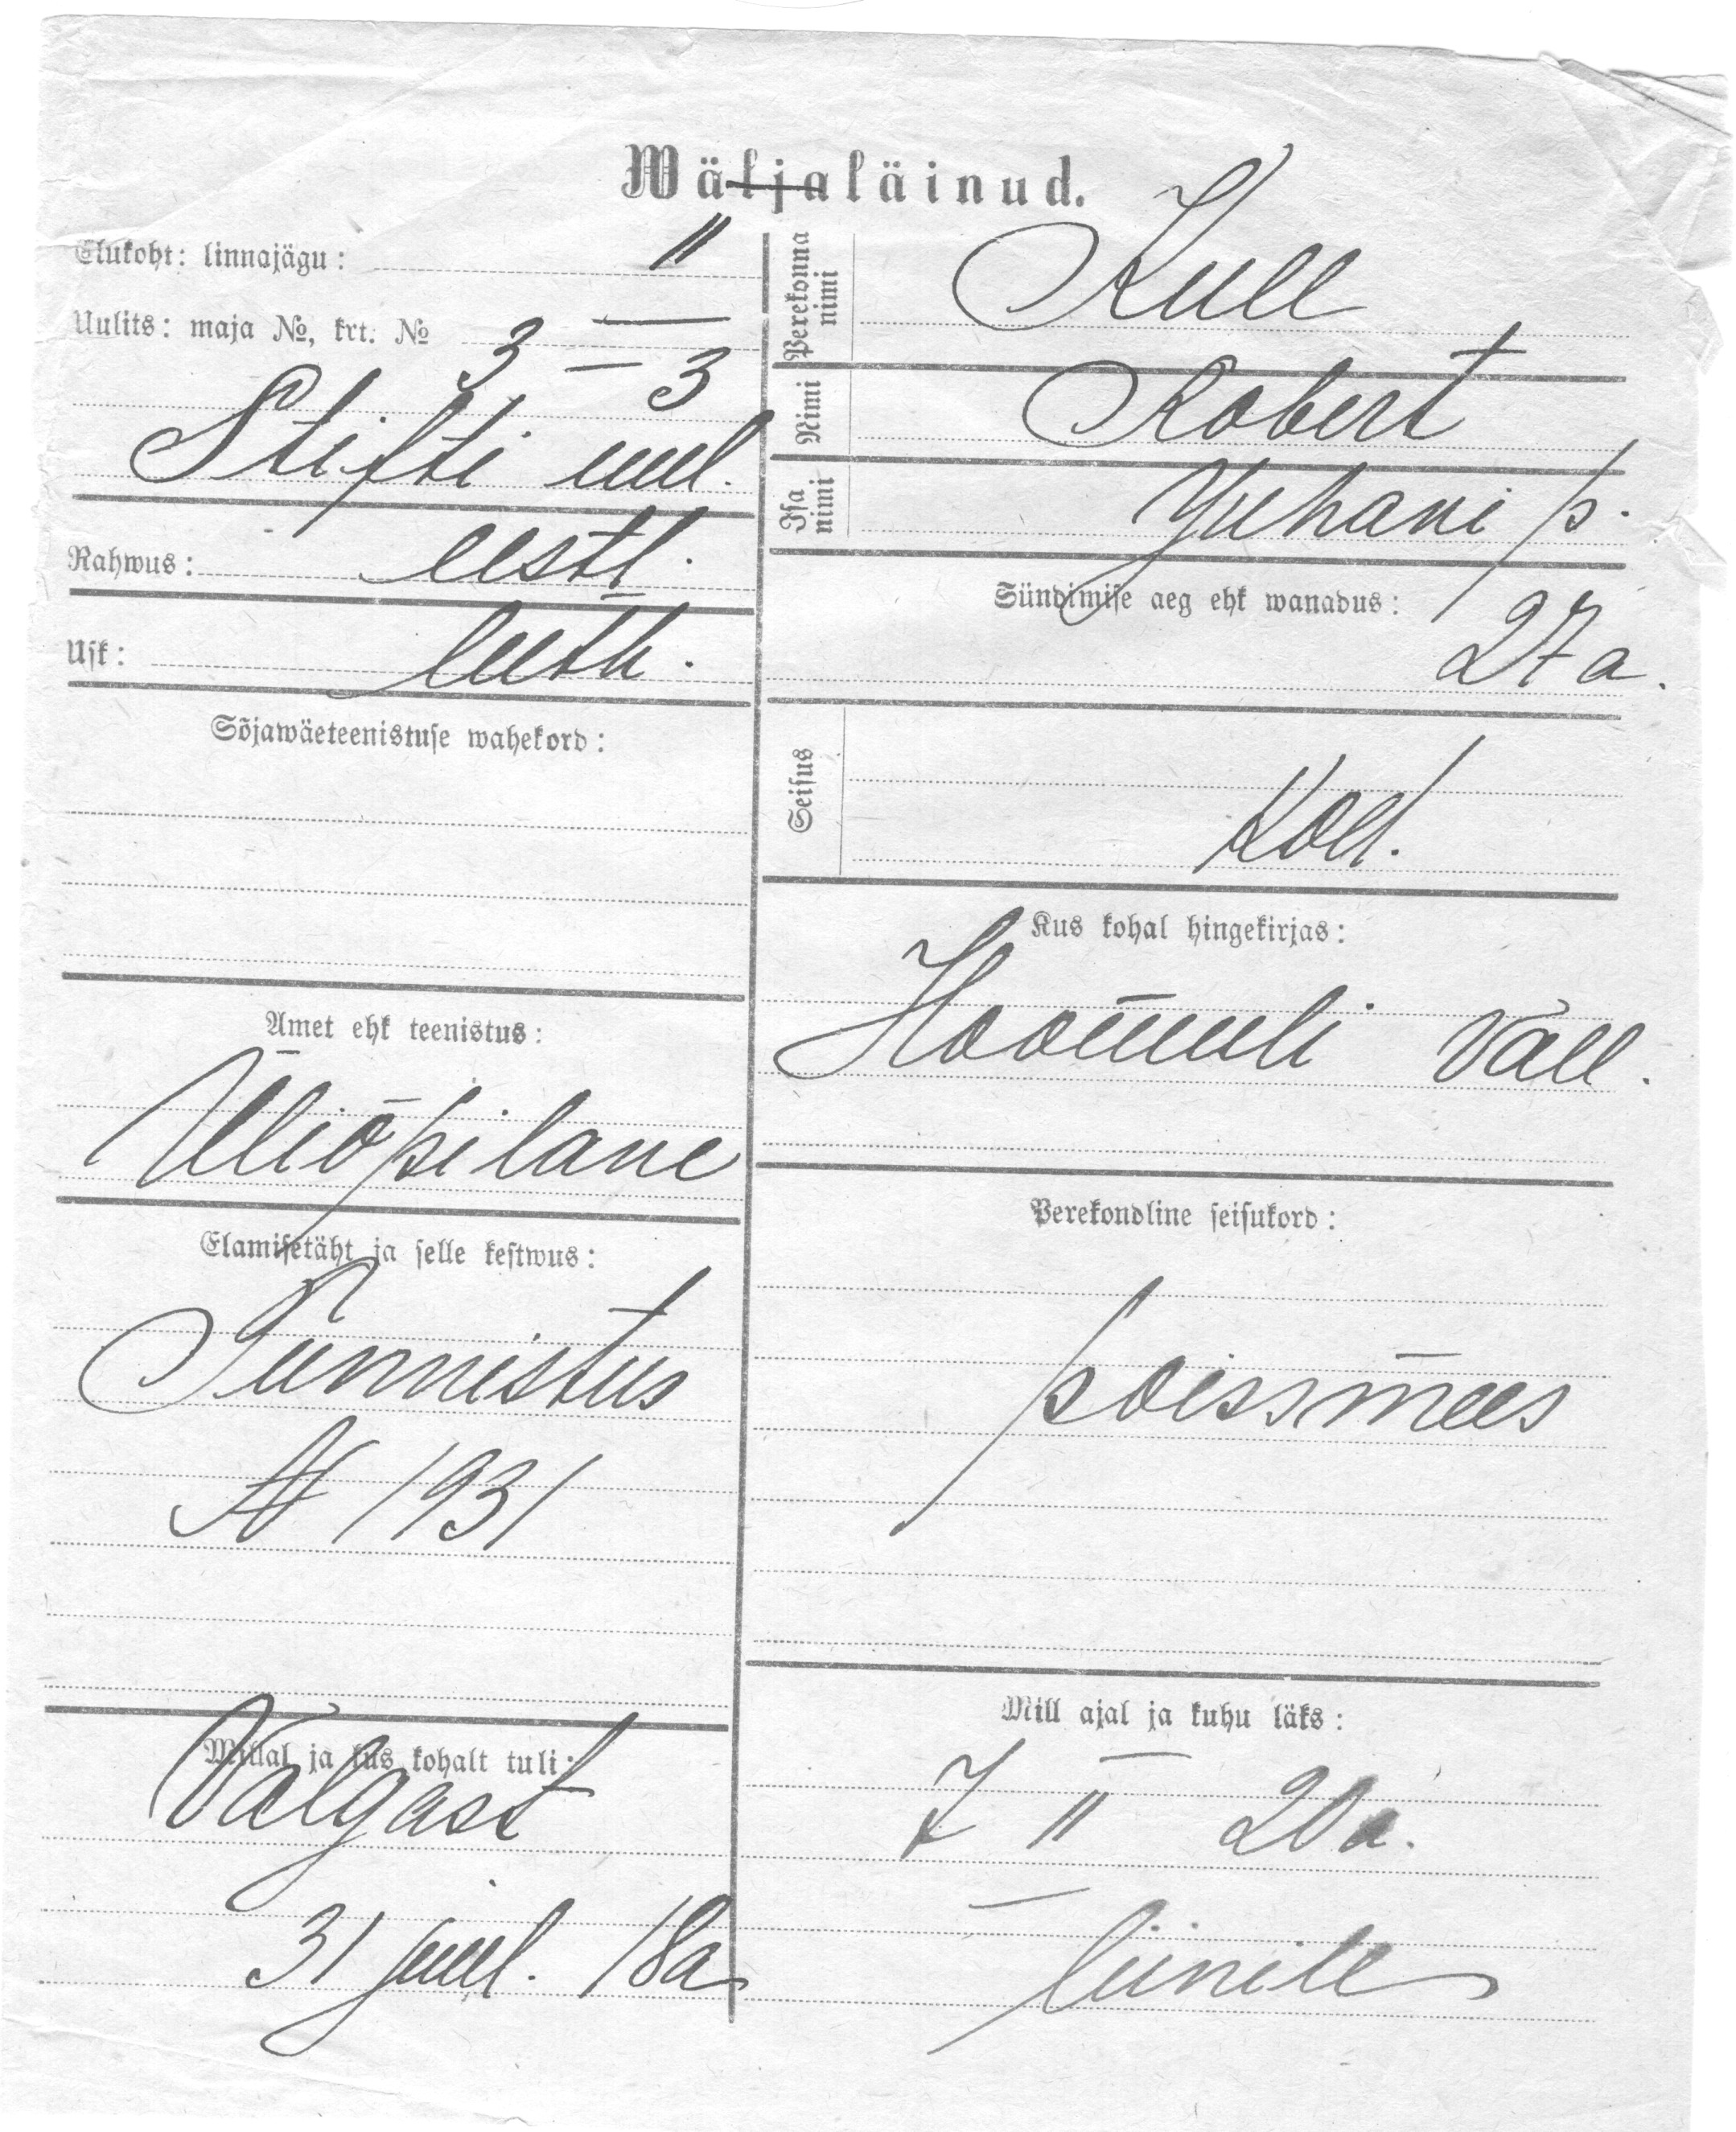 Wäljaläinud.
Elukoht: linnajägu: II
Uulits: maja №, krt. №
3 — 3
Stifti uul.
Rahwus: eestl.
Usk: luth.
Sõjawäeteenistuse wahekord:
Amet ehk teenistus:
Üliõpilane
Elamisetäht ja selle kestwus:
Tunnistus
№ 1931
Millal ja kus kohalt tuli:
Valgast
31 juul. 18a
Perekonna nimi Kull
Nimi Robert
Isa nimi Juhani p.
Sündimise aeg ehk wanadus:
27 a.
Seisus
Kod.
Kus kohal hingekirjas:
Hoomuli Vall.
Perekondline seisukord:
poissmees
Mill ajal ja kuhu läks:
7 II 20 a.
liinile